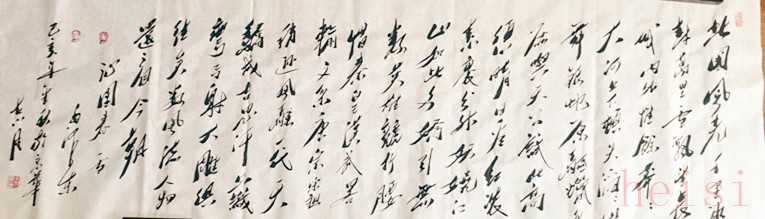 北国风光千里冰
封万里雪飘望长
城内外惟余莽莽
大河上下顿失滔滔山
舞银蛇原驰蜡象
欲与天公试比高
须晴日看红装
素裹分外妖娆江
山如此多娇引无
数英雄竞折腰
惜秦皇汉武略
输文采唐宗宋祖
稍逊风骚一代天
骄成吉思汗只识
弯弓射大雕俱
往矣数风流人物
还看今朝
沁园春雪
毛泽东
己亥年秋于京华
heisi